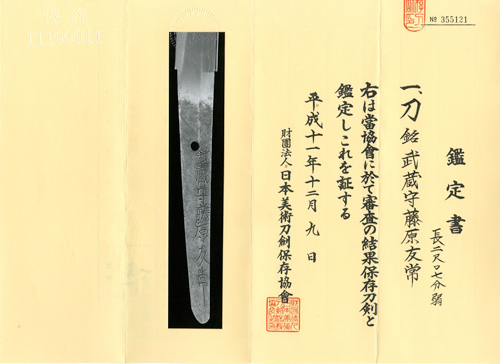 № 355121
鑑定書
一、刀 銘 武蔵守藤原友常
長二尺〇七分弱
右は當協會に於て審査の結果保存刀剣と
鑑定しこれを証する
平成十一年十二月九日
財團法人日本美術刀剣保存協會
武蔵守藤原友常